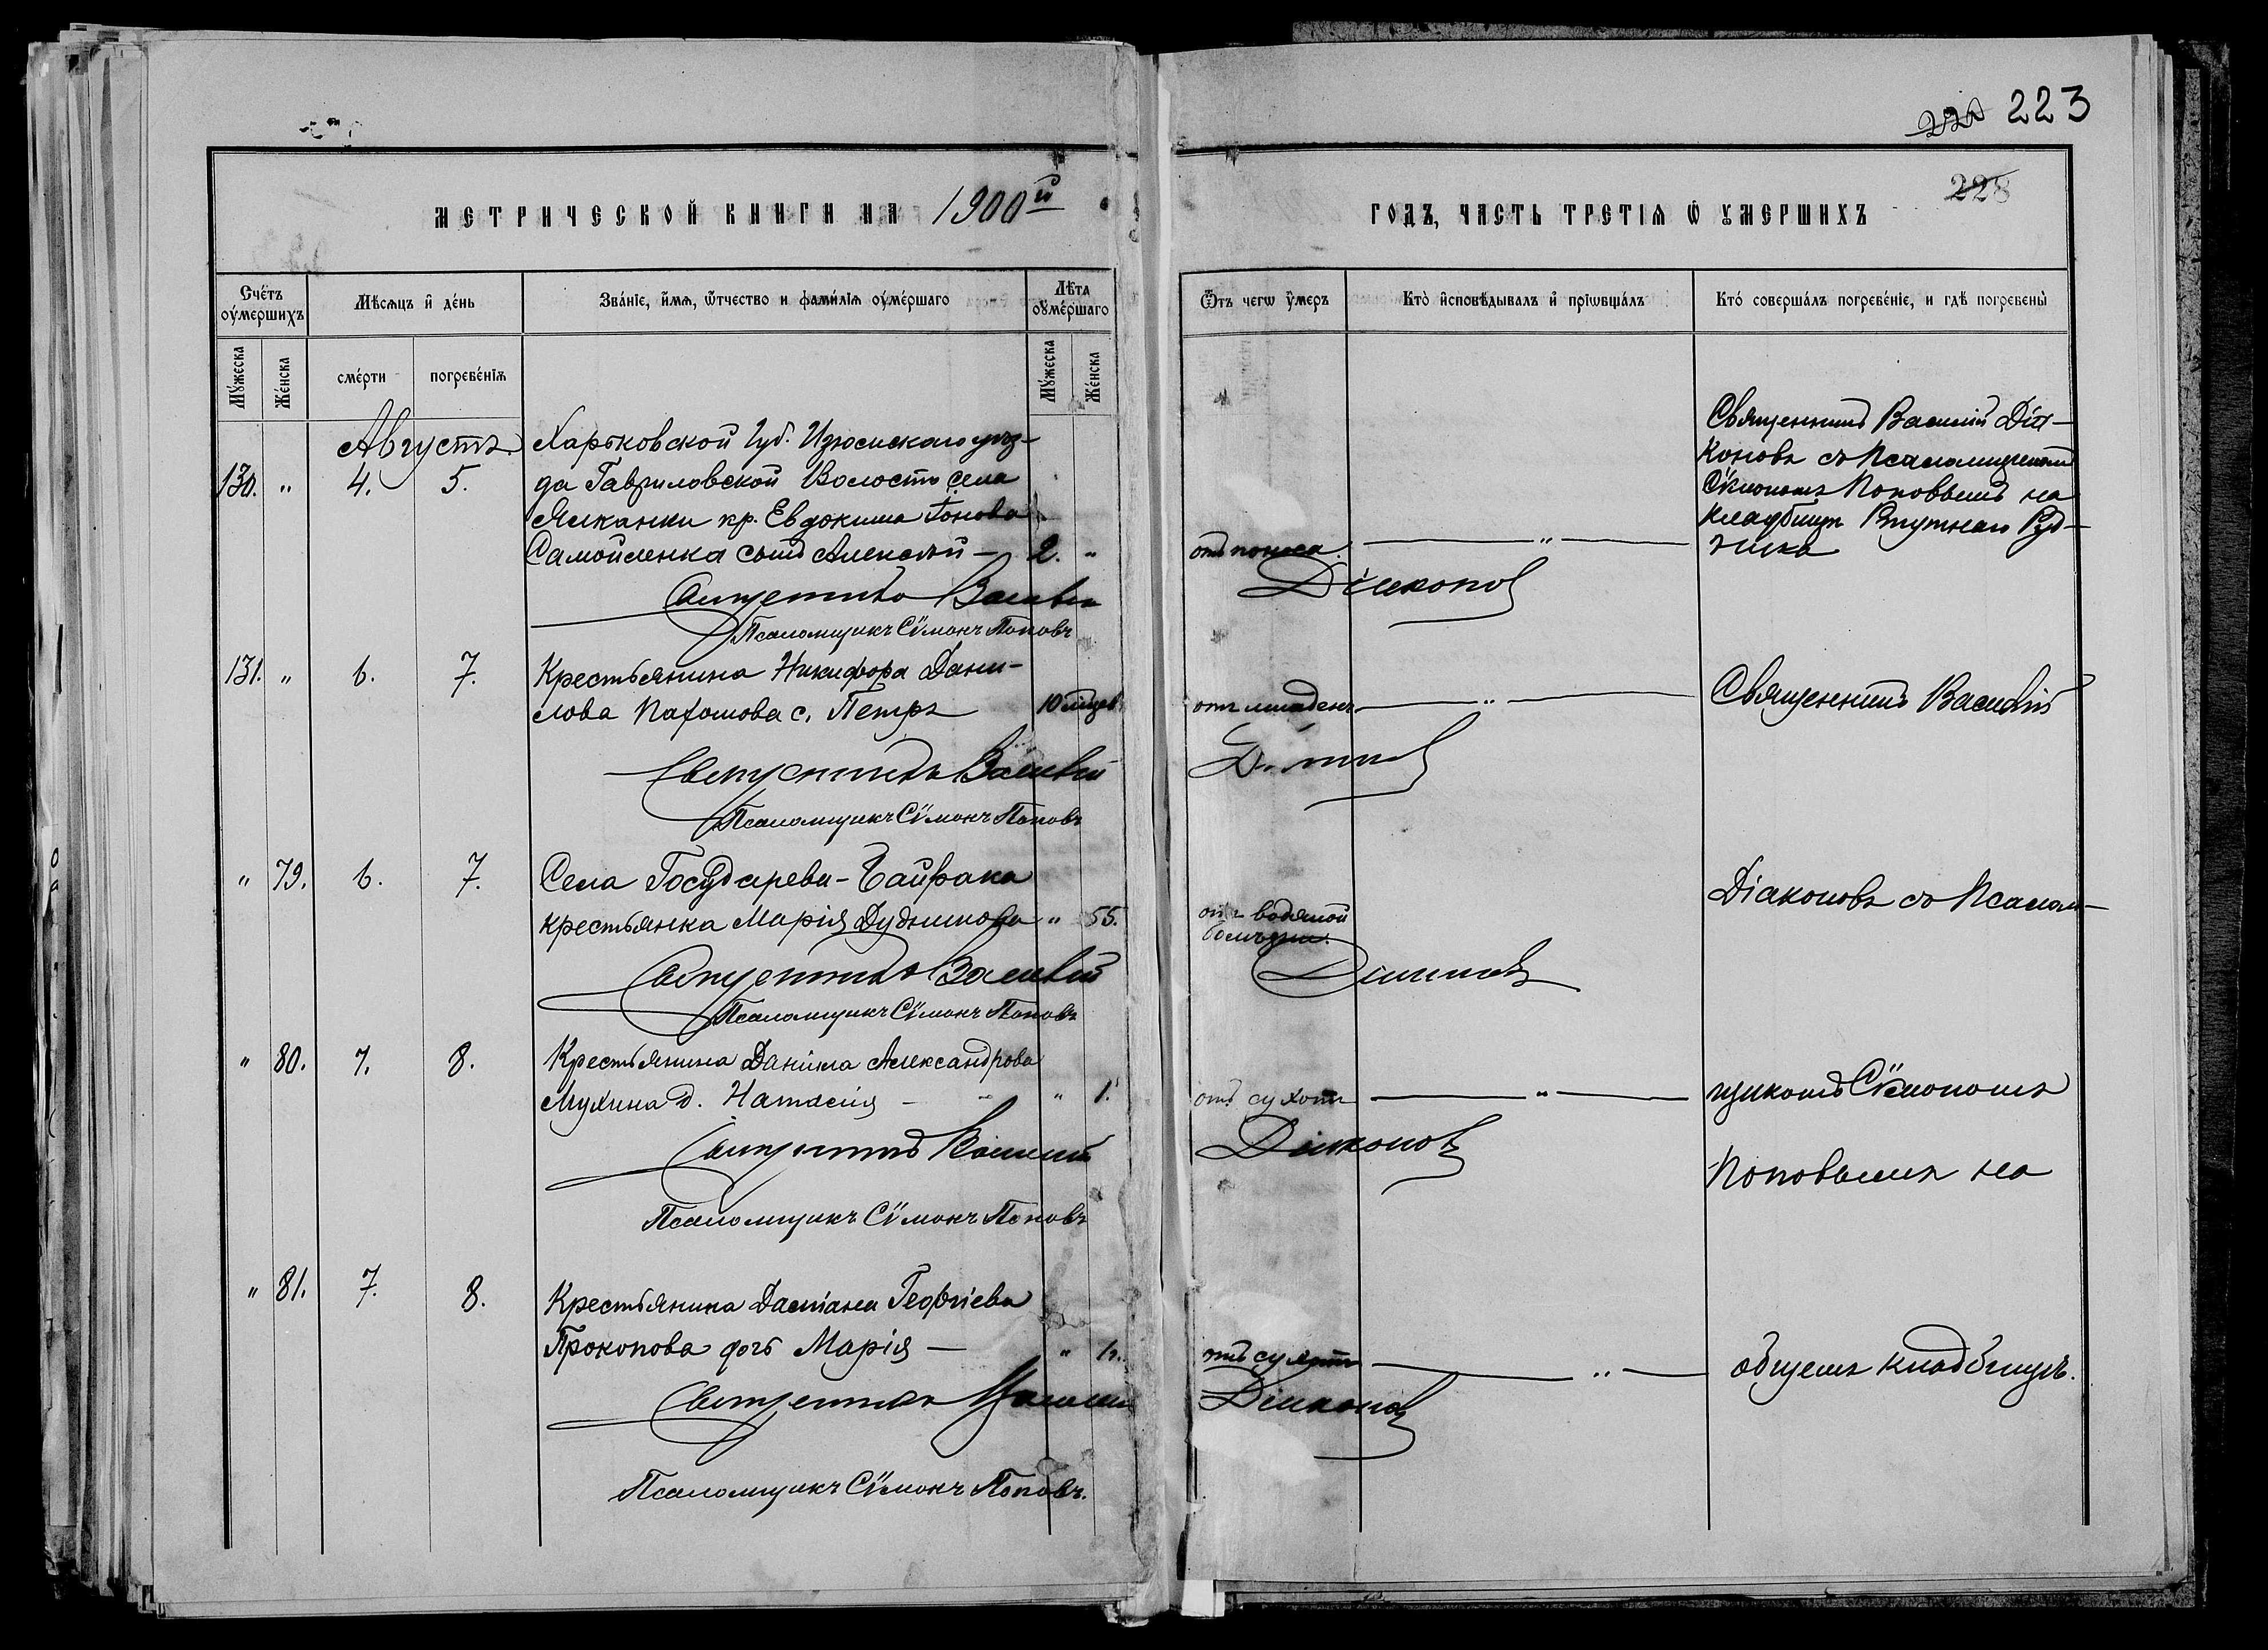 223
228
МЕТРИЧЕСКОЙ КНИГИ НА 1900й
ГОДЪ, ЧАСТЬ ТРЕТІѦ Ѿ УМЕРШИХЪ
Счетъ оумершихъ
Мѣсяцъ и день
Званіе, имя, отчество и фамилія оумершаго
Лѣта оумершаго
Мужеска
Женска
смерти
погребенія
Мужеска
Женска
Отъ чего умеръ
Кто исповѣдывалъ и пріобщалъ
Кто совершалъ погребеніе, и гдѣ погребены
Августъ.
Харьковской Губ. Изюмскаго уѣз-
130. " 4. 5. да Гавриловской Волости села
кр. Евдокима
Самойленка сынъ Алексѣй — 2. "
отъ поноса. — " —
Священникъ Василій Діа-
коновъ съ Псаломщикомъ
Сѵмономъ Поповымъ на
кладбищѣ Ртутнаго Руд-
ника
Священникъ Василій Діаконовъ
Псаломщикъ Сѵмонъ Поповъ
131. " 6. 7. Крестьянина Никифора Дани-
лова Пахомова с. Петръ 10 мѣсцев.
отъ младенч. — " —
Священникъ Василій
Священникъ Василій Діаконовъ
Псаломщикъ Сѵмонъ Поповъ
" 79. 6. 7. Села Государева-Байрака
крестьянка Марія Дудникова " 55.
отъ водяной
болѣзни.
Діаконовъ съ Псалом-
Священникъ Василій Діаконовъ
Псаломщикъ Сѵмонъ Поповъ
" 80. 7. 8. Крестьянина Даніила Александрова
Мухина д. Наталія - - " 1.
отъ сухотъ — " —
щикомъ Сѵмономъ
Священникъ Василій Діаконовъ
Поповымъ на
Псаломщикъ Сѵмонъ Поповъ
" 81. 7. 8. Крестьянина Даміана Георгіева
Прокопова дочь Марія — "
отъ сухотъ — " —
общемъ кладбищѣ.
Священникъ Василій Діаконовъ
Псаломщикъ Сѵмонъ Поповъ.